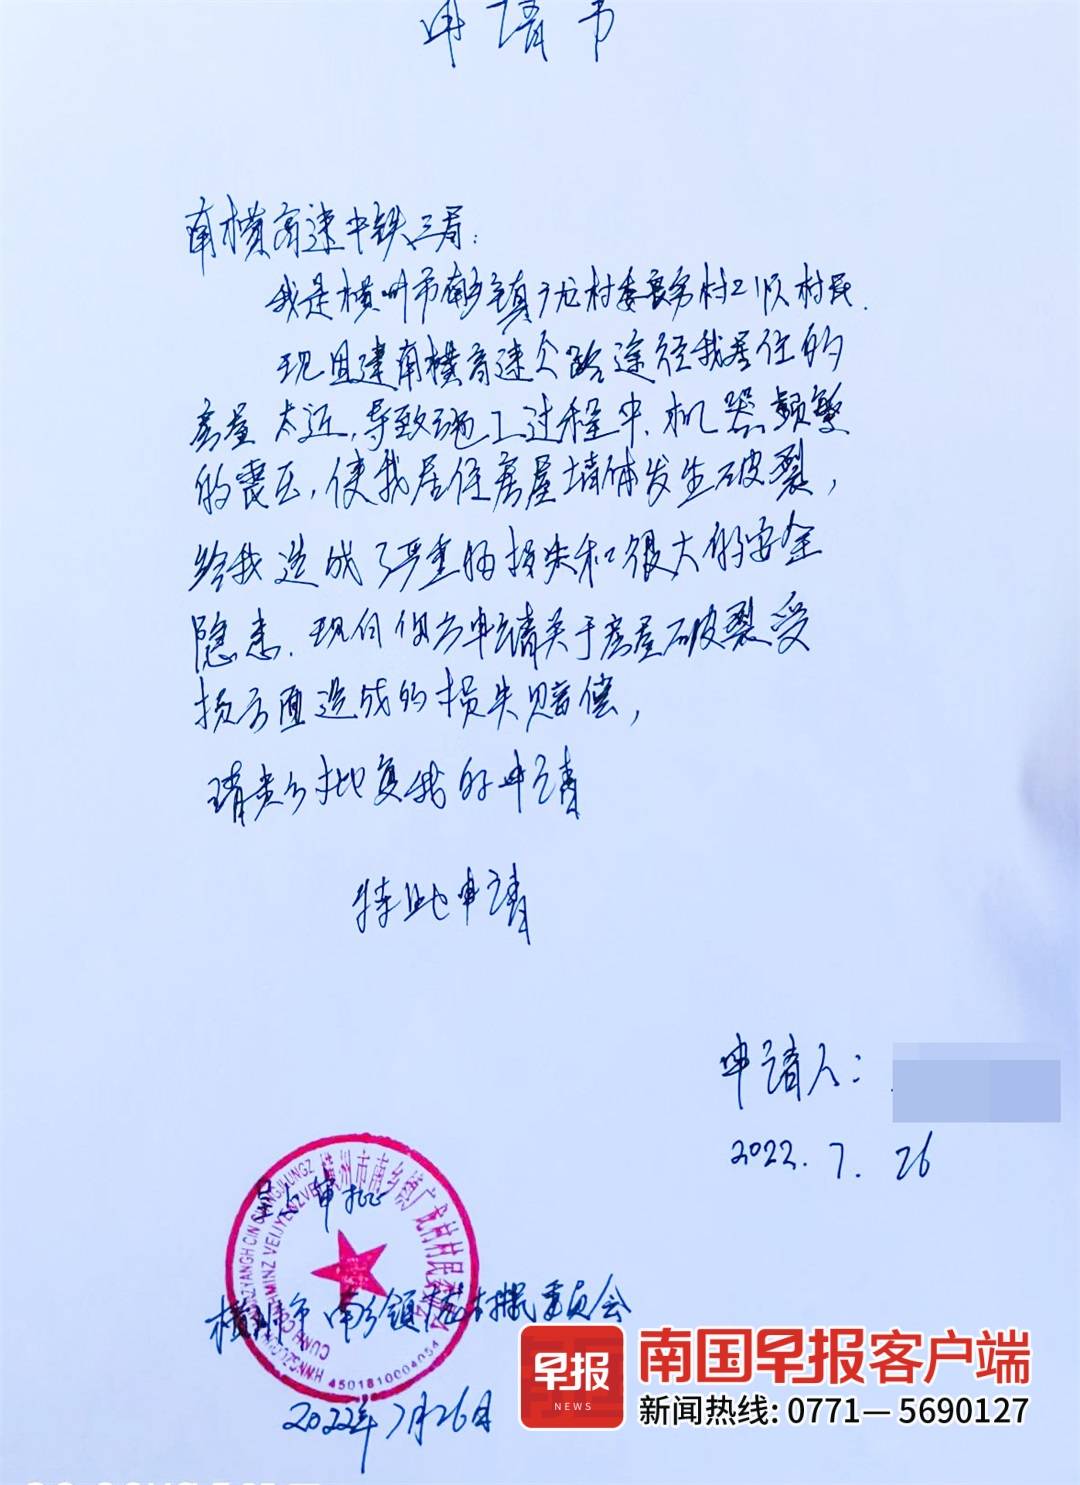 申请书
南横高速中铁三局:
我是横州市南乡镇广龙村委良务村21队村民.
现因建南横高速公路途径我居住的
房屋太近,导致施工过程中,机器频繁
的震压,使我居住房屋墙体发生破裂,
给我造成了严重的损失和很大的安全
隐患.现向贵方申请关于房屋破裂受
损方面造成的损失赔偿,
请贵方批复我的申请
特此申请
申请人:
2022.7.26
横州市南乡镇广龙村村民委员会
4501810004054
审批
横州市南乡镇广龙村村民委员会
2022年7月26日
早报
NEWS
南国早报客户端
新闻热线: 0771—5690127